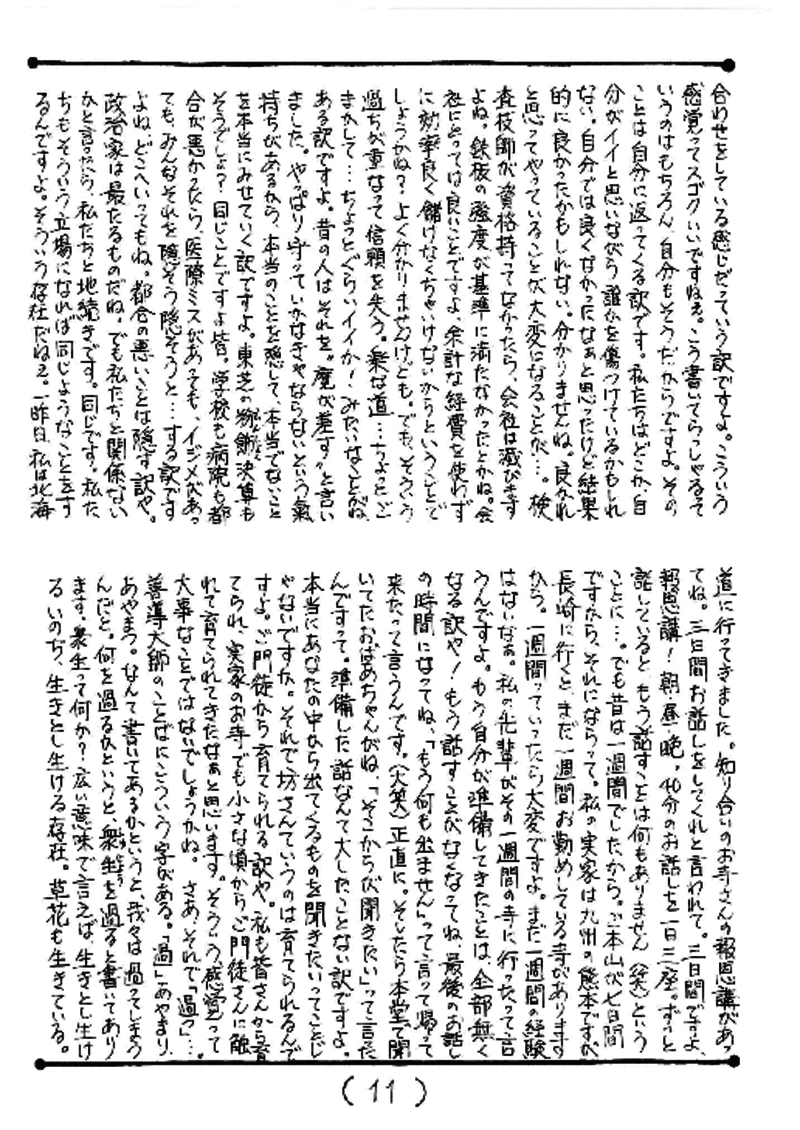 合わせをしている感じだっていう訳ですよ。こういう
感覚ってスゴクいいですねぇ。こう書いてらっしゃるって
いうのはもちろん、自分もそうだからですよ。その
ことは自分に返ってくる訳です。私たちはどこか、自
分がイイと思いながら誰かを傷つけているかもしれ
ない。自分では良くなかったなぁと思ったけど結果
的に良かったかもしれない。分かりませんね。良かれ
と思ってやっていることが大変になることが…。検
査技師が資格持ってなかったら、会社は滅びます
よね。鉄板の強度が基準に満たなかったとかね。会
社にとっては良いことですよ、余計な経費を使わず
に効率良く儲けなくちゃいけないからということで
しょうかね？よく分かりませんけども。でも、そういう
過ちが重なって信頼を失う。楽な道…ちょっとご
まかして…ちょっとぐらいイイか！みたいなことがね
ある訳ですよ。昔の人はそれを〝魔が差す〟と言い
ました。やっぱり守っていかなきゃならないという気
持ちがあるから、本当のことを隠して、本当でないこと
を本当にみせていく訳ですよ。東芝の粉飾決算も
そうでしょ？同じことですよ皆。学校も病院も都
合が悪かったら、医療ミスがあっても、イジメがあっ
ても、みんなそれを隠そう隠そうと…する訳です
よね、どこへいってもね。都合の悪いことは隠す訳や。
政治家は最たるものだね。でも私たちと関係ない
かと言ったら、私たちと地続きです。同じです。私た
ちもそういう立場になれば同じようなことをす
るんですよ。そういう存在だねぇ。一昨日、私は北海
道に行ってきました。知り合いのお寺さんの報恩講があっ
てね。三日間お話しをしてくれと言われて。三日間ですよ、
報恩講！朝・昼・晩。40分のお話しを一日三座。ずっと
話していると、もう話すことは何もありません（笑）という
ことに…。でも昔は一週間でしたから。ご本山が七日間
ですから、それにならって。私の実家は九州の熊本ですが
長崎に行くと、まだ一週間お勤めしている寺があります
から。一週間っていったら大変ですよ。まだ一週間の経験
はないなぁ。私の先輩がその一週間の寺に行ったって言
うんですよ。もう自分が準備してきたことは、全部無く
なる訳や！もう話すことがなくなってね、最後のお話し
の時間になってね、「もう何も出ません」って言って帰って
来たって言うんです。（大笑）正直に。そしたら本堂で聞
いてたおばあちゃんがね「そこからが聞きたい」って言った
んですって。準備した話なんて大したことない訳ですよ。
本当にあなたの中から出てくるものを聞きたいってことじ
ゃないですか。それで坊さんていうのは育てられるんで
すよ。ご門徒から育てられる訳や。私も皆さんから育
てられ、実家のお寺でも小さな頃からご門徒さんに触
れて育てられてきたなぁと思います。そういう感覚って
大事なことではないでしょうかね。さあ、それで「過つ」…
善導大師のことばにこういう字がある。「過」あやまり、
あやまつ。なんて書いてあるかというと、我々は過ってしまう
んだと。何を過るかというと、衆生を過ると書いてあり
ます。衆生って何か？広い意味で言えば、生きとし生け
るいのち、生きとし生ける存在。草花も生きている。
(11)